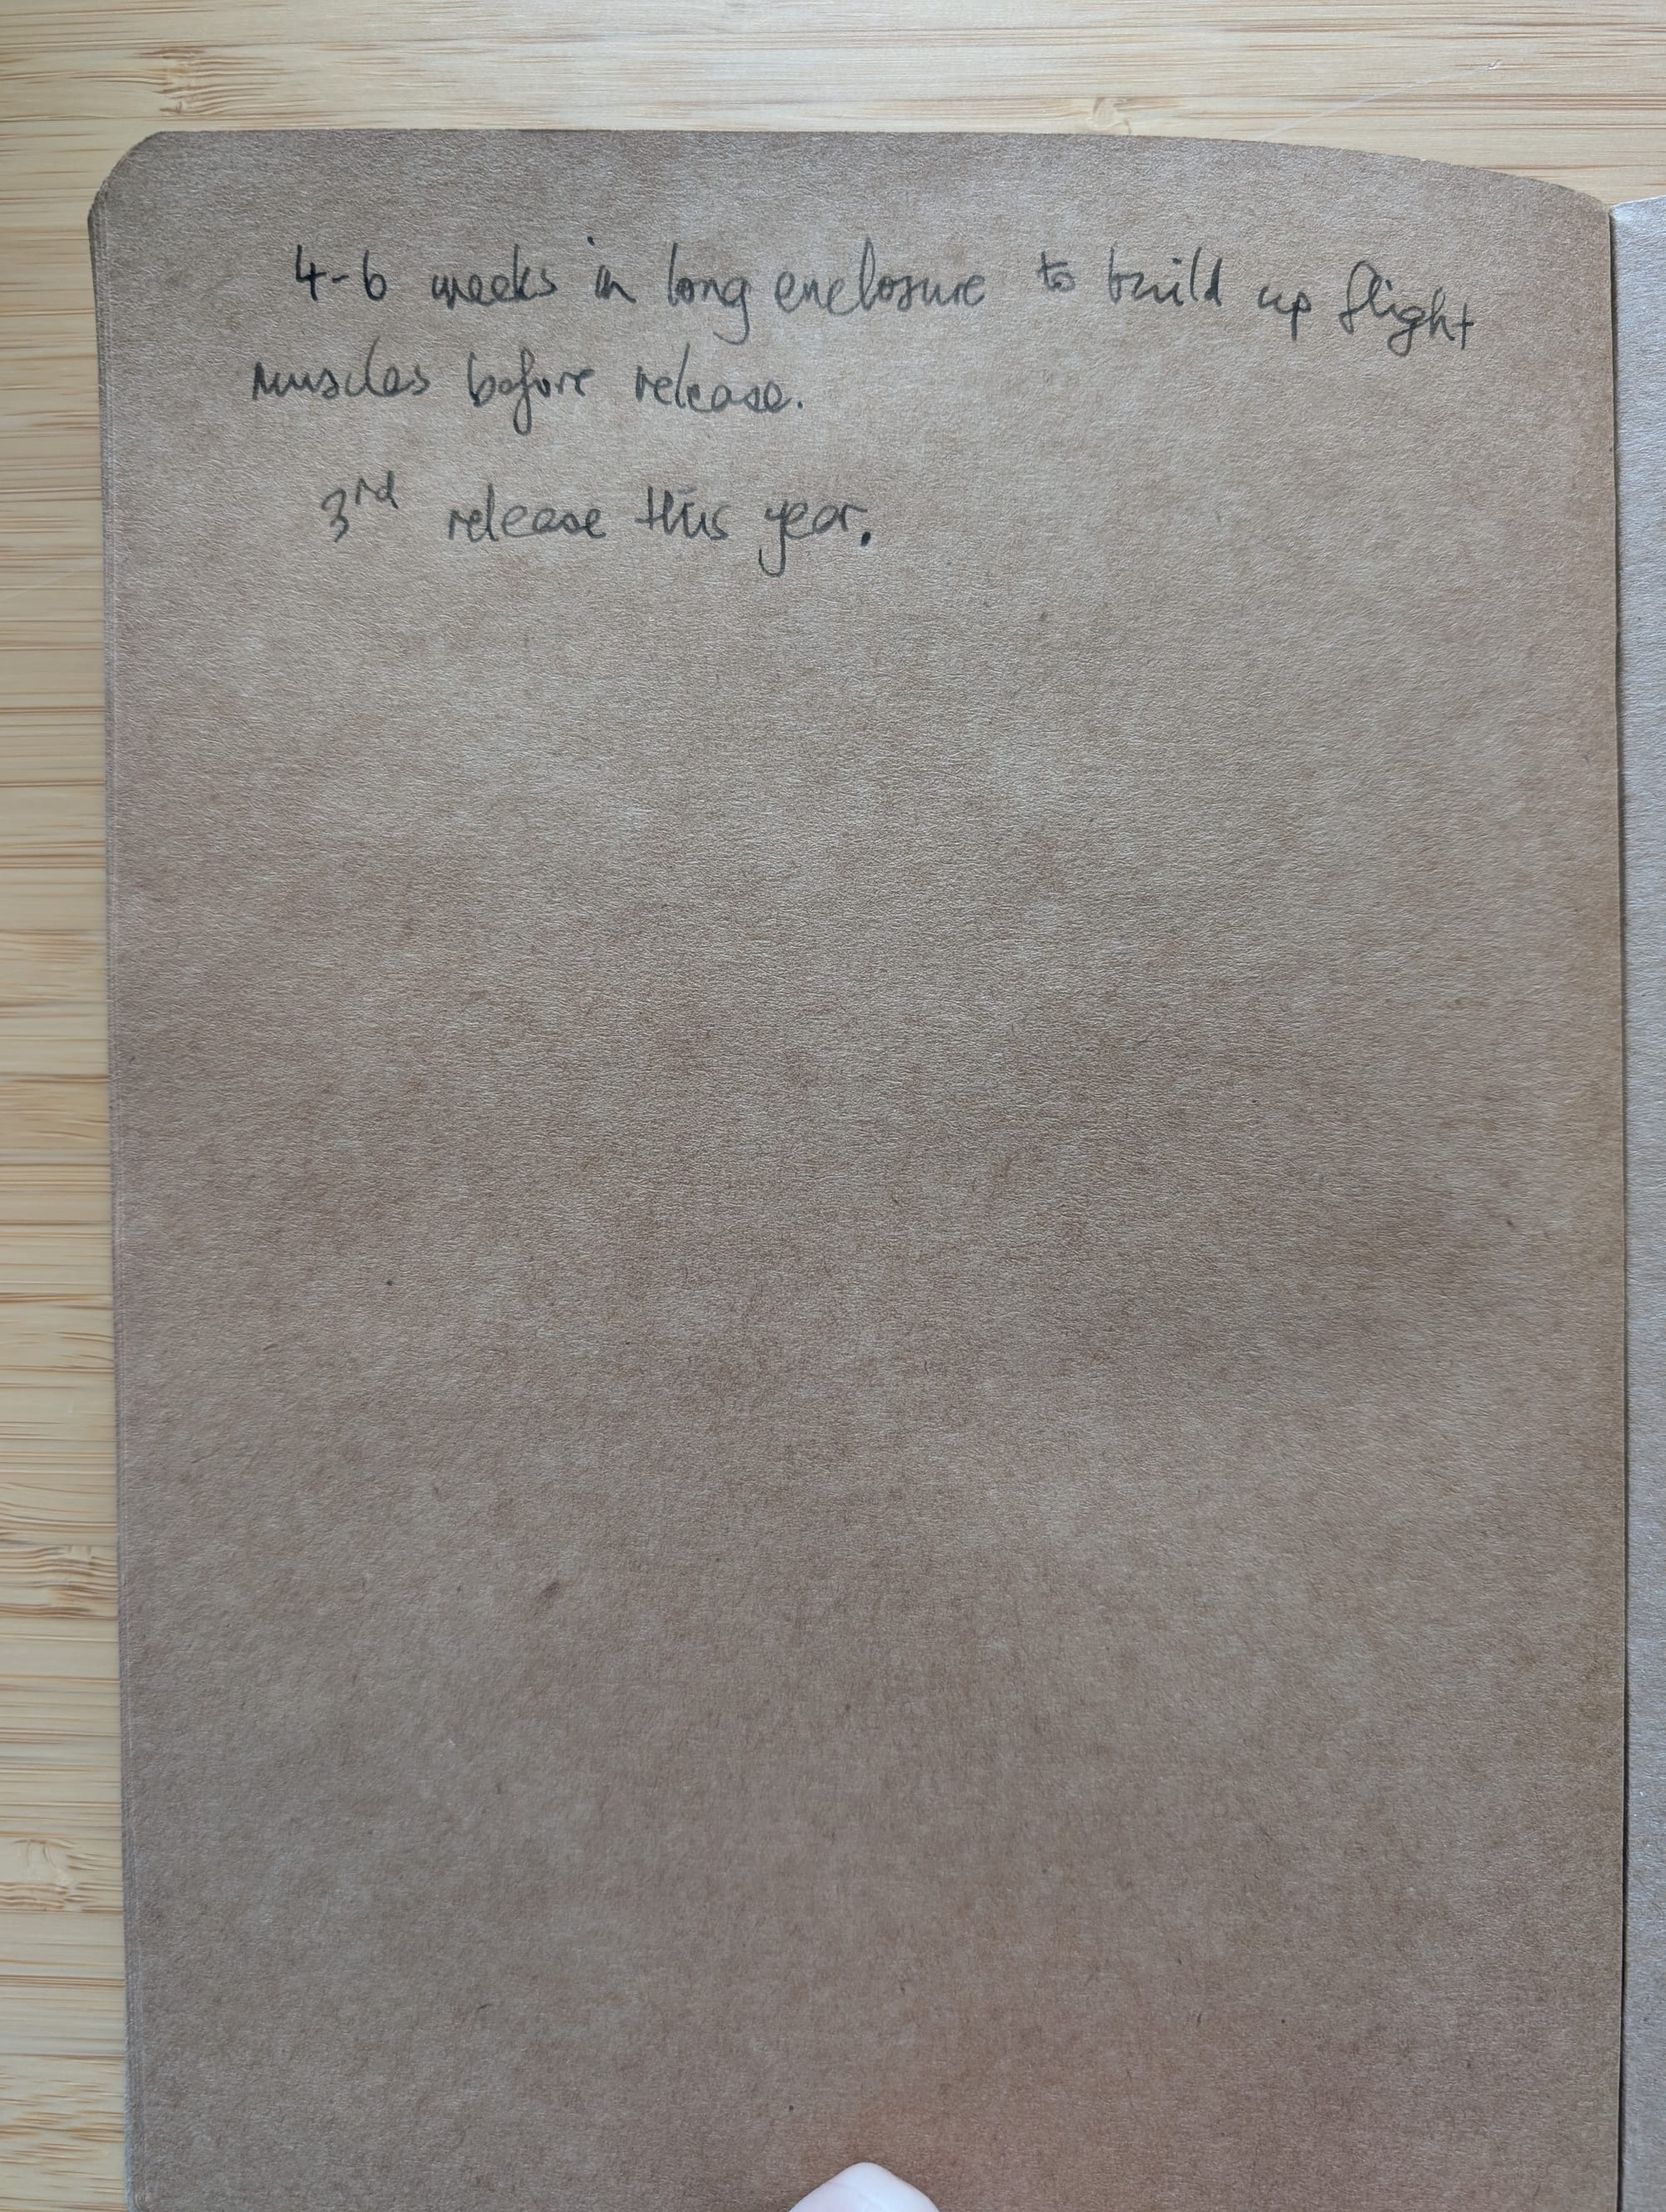 4-6 weeks in long enclosure to build up flight
muscles before release.
3rd release this year.